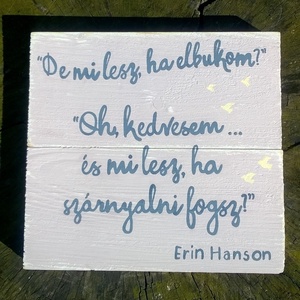 "De mi lesz, ha elbukom?"
"Oh, kedvesem ...
és mi lesz, ha
szárnyalni fogsz?"
Erin Hanson